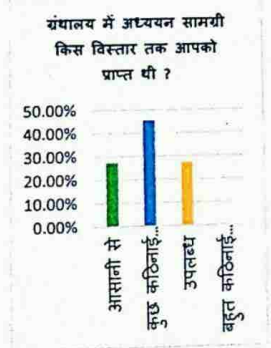 ग्रंथालय में अध्ययन सामग्री
किस विस्तार तक आपको
प्राप्त थी ?
50.00%
40.00%
30.00%
20.00%
10.00%
0.00%
आसानी से
कुछ कठिनाई...
उपलब्ध
बहुत कठिनाई...